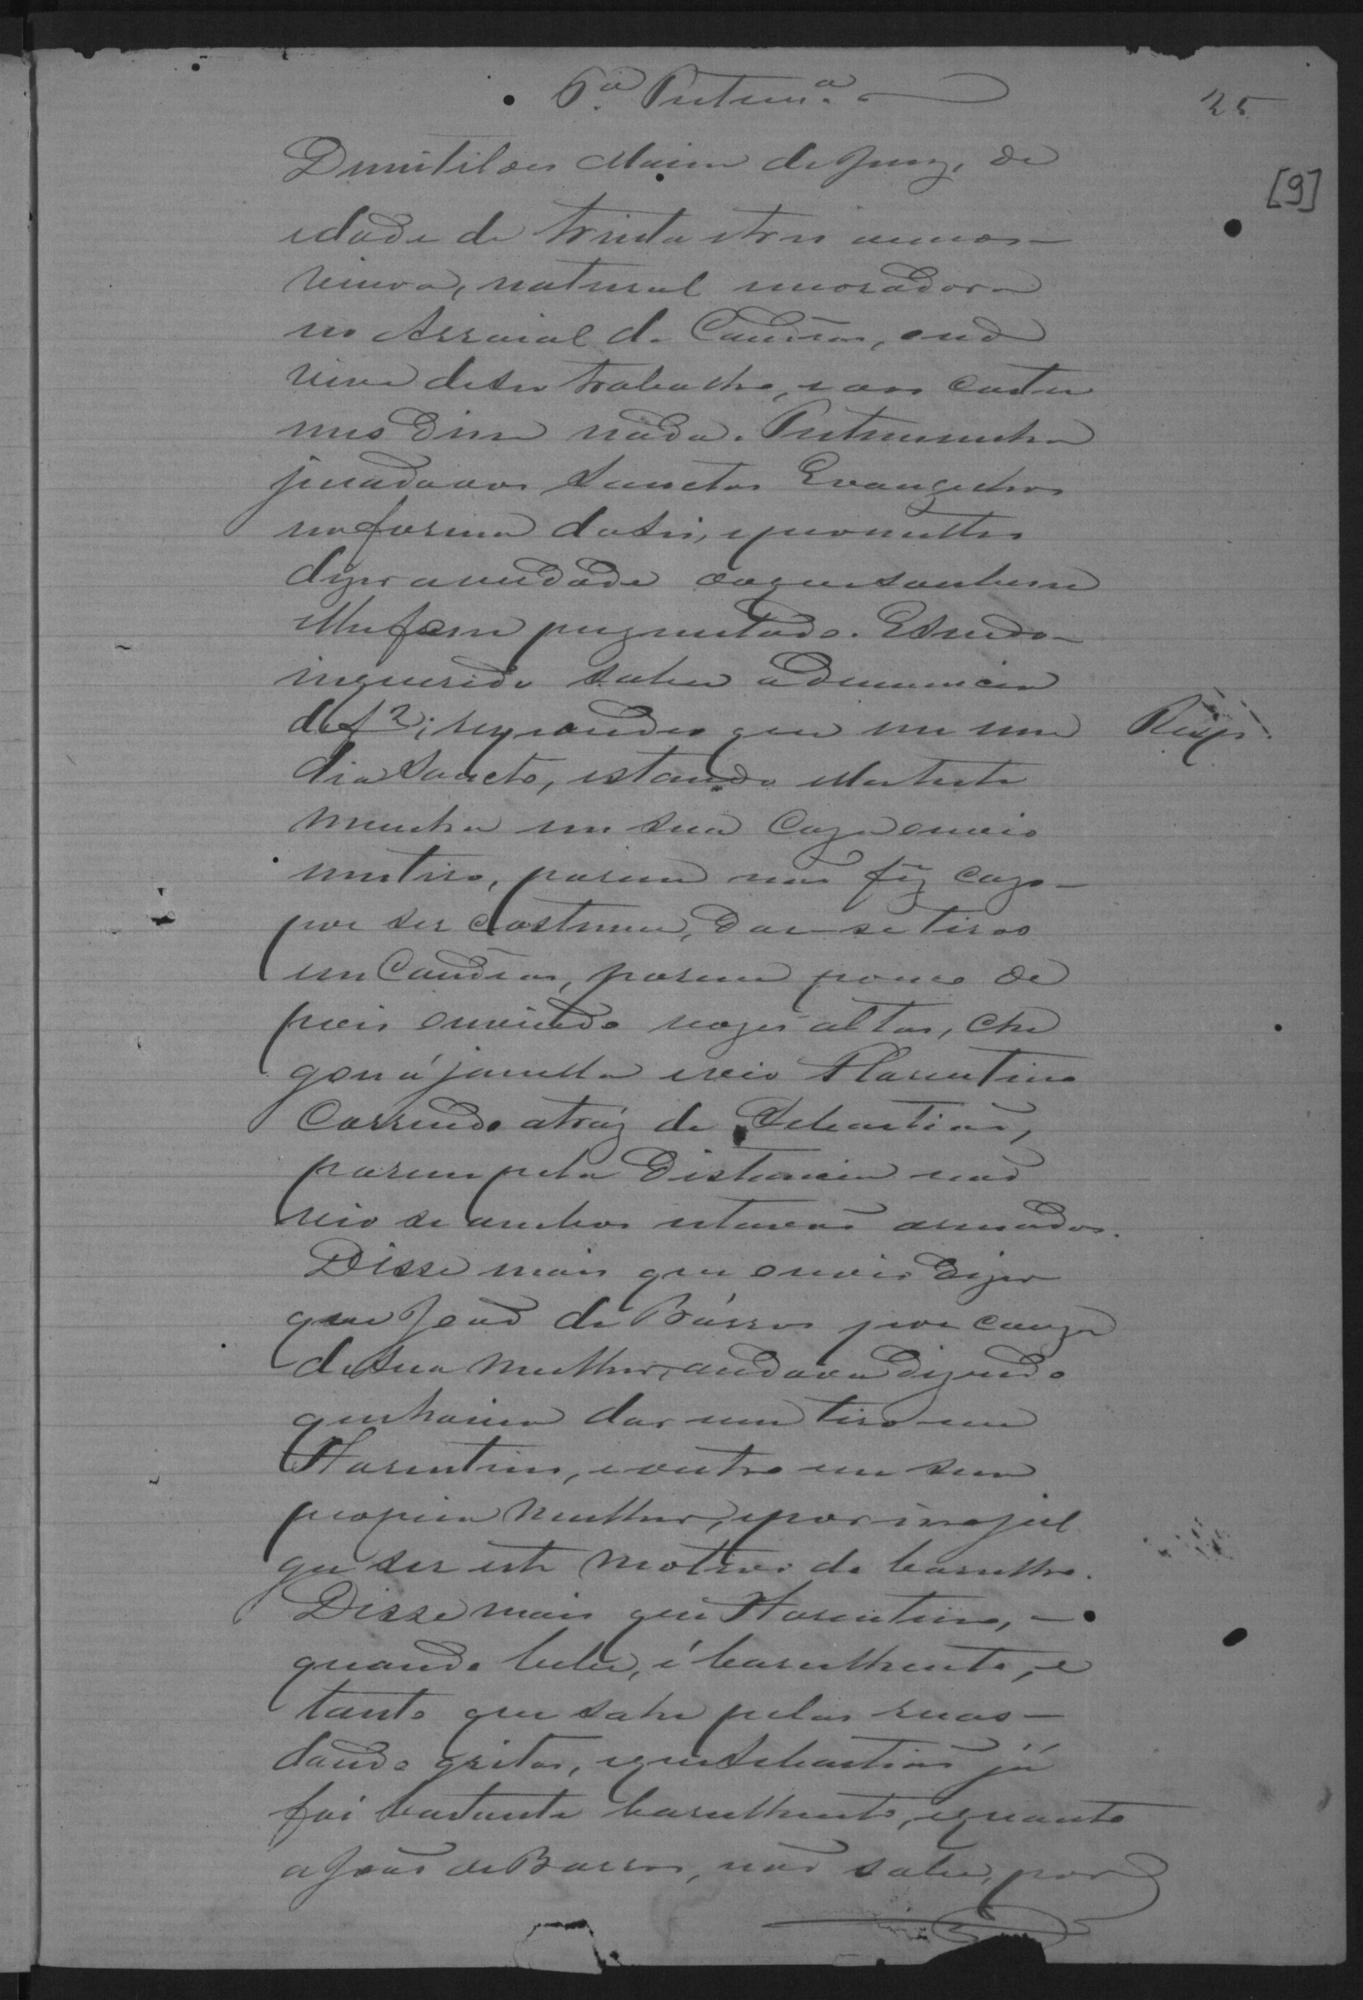 6.ª Testem.ª
25
[9]
Dimitildes Maria de Jesus, de
idade de trinta e tres annos
viuva, natural e moradora
no Arraial de Caudeas, onde
vive de seu trabalho, e aos costu
mes disse nada. Testemunha
jurada aos Sanctos Evangelhos
na forma da Lei, e prometteo
dizer a verdade do que soubesse
e lhe fosse perguntado. E sendo
inquerida sobre a denuncia
de f 2; respondeo que em um
Resp.
dia Sancto, estando ella teste
munha em sua caza ouvio
um tiro, porem não fez cazo
por ser costume, dar-se tiros
em Caudeas, porem pouco de
pois ouvindo vozes altas, che
gou á janella e vio Florentino
correndo atráz de Sebastião,
porem pela distancia não
vio se ambos estavão armados.
Disse mais que ouvio dizer
que João de Barros por cauza
de sua mulher, andava dizendo
que havia dar um tiro em
Florentino, e outro em sua
propria mulher, e por isso jul
ga ser este motivo do barulho.
Disse mais que Florentino,
quando bebe, é barulhento, e
tanto que sahe pelas ruas
dando gritos, e que Sebastião já
foi bastante barulhento, e quanto
a João de Barros, não sabe, por